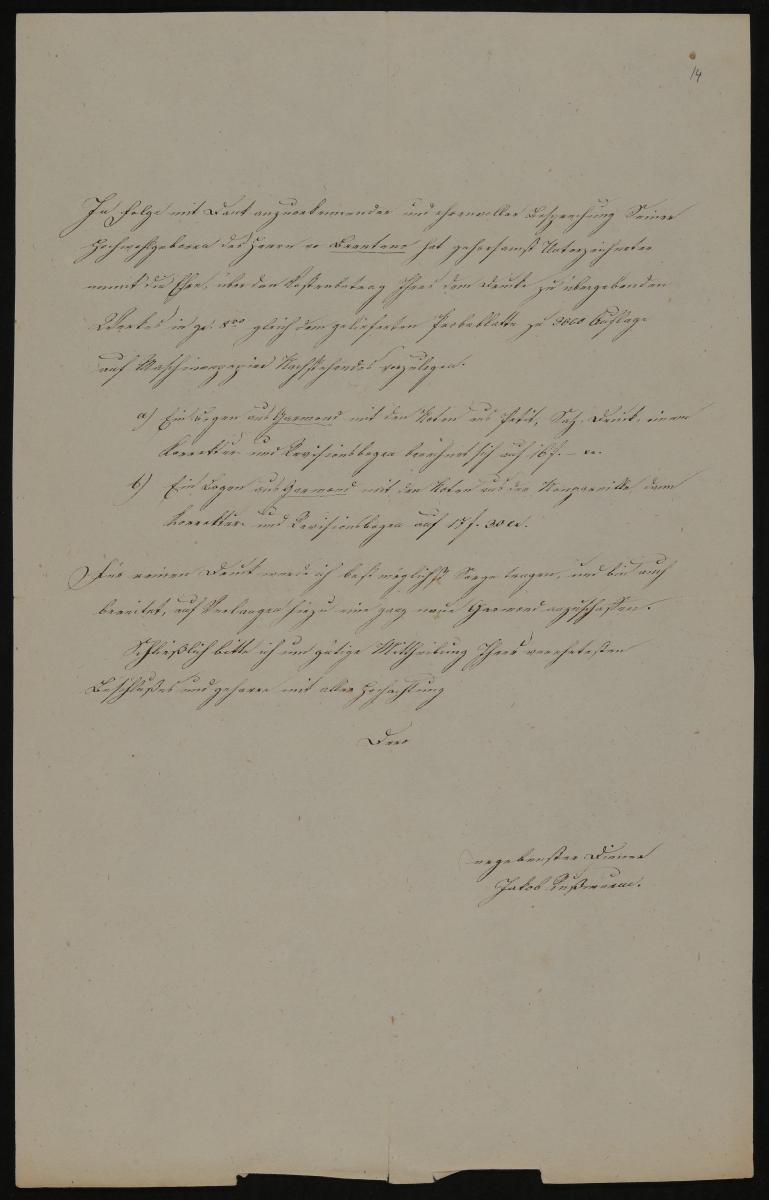 14
In Folge mit Dank anzuerkennender und ehrenvoller Besprechung Seiner
Hochwohlgeboren des Herrn v Brentano hat gehorsamst Unterzeichneter
nunmehr die Ehre, über den Kostenbetrag Ihres dem Drucke zu übergebenden
Werkes in gr. 8vo gleich dem gelieferten Probeblatte zu 3000 Auflage
auf Maschinenpapier Nachstehendes vorzulegen.
a) Ein Bogen aus Garmond mit den Noten aus Petit, Satz, Druck, einem
Korrektur- und Revisionsbogen berechnet sich auf 16 f. – xr.
b) Ein Bogen aus Garmond mit den Noten aus der Nonpareille dann
Korrektur- und Revisionsbogen auf 17 f. 30 xr.
Für reinen Druck werde ich best möglichst Sorge tragen, und bin auch
bereitet, auf Verlangen hiezu eine ganz neue Garmond anzuschaffen.
Schließlich bitte ich um gütige Mittheilung Ihres verehrtesten
Beschlußes und geharre mit aller Hochachtung
Dero
ergebenster Diener
Jakob Rußwurm.